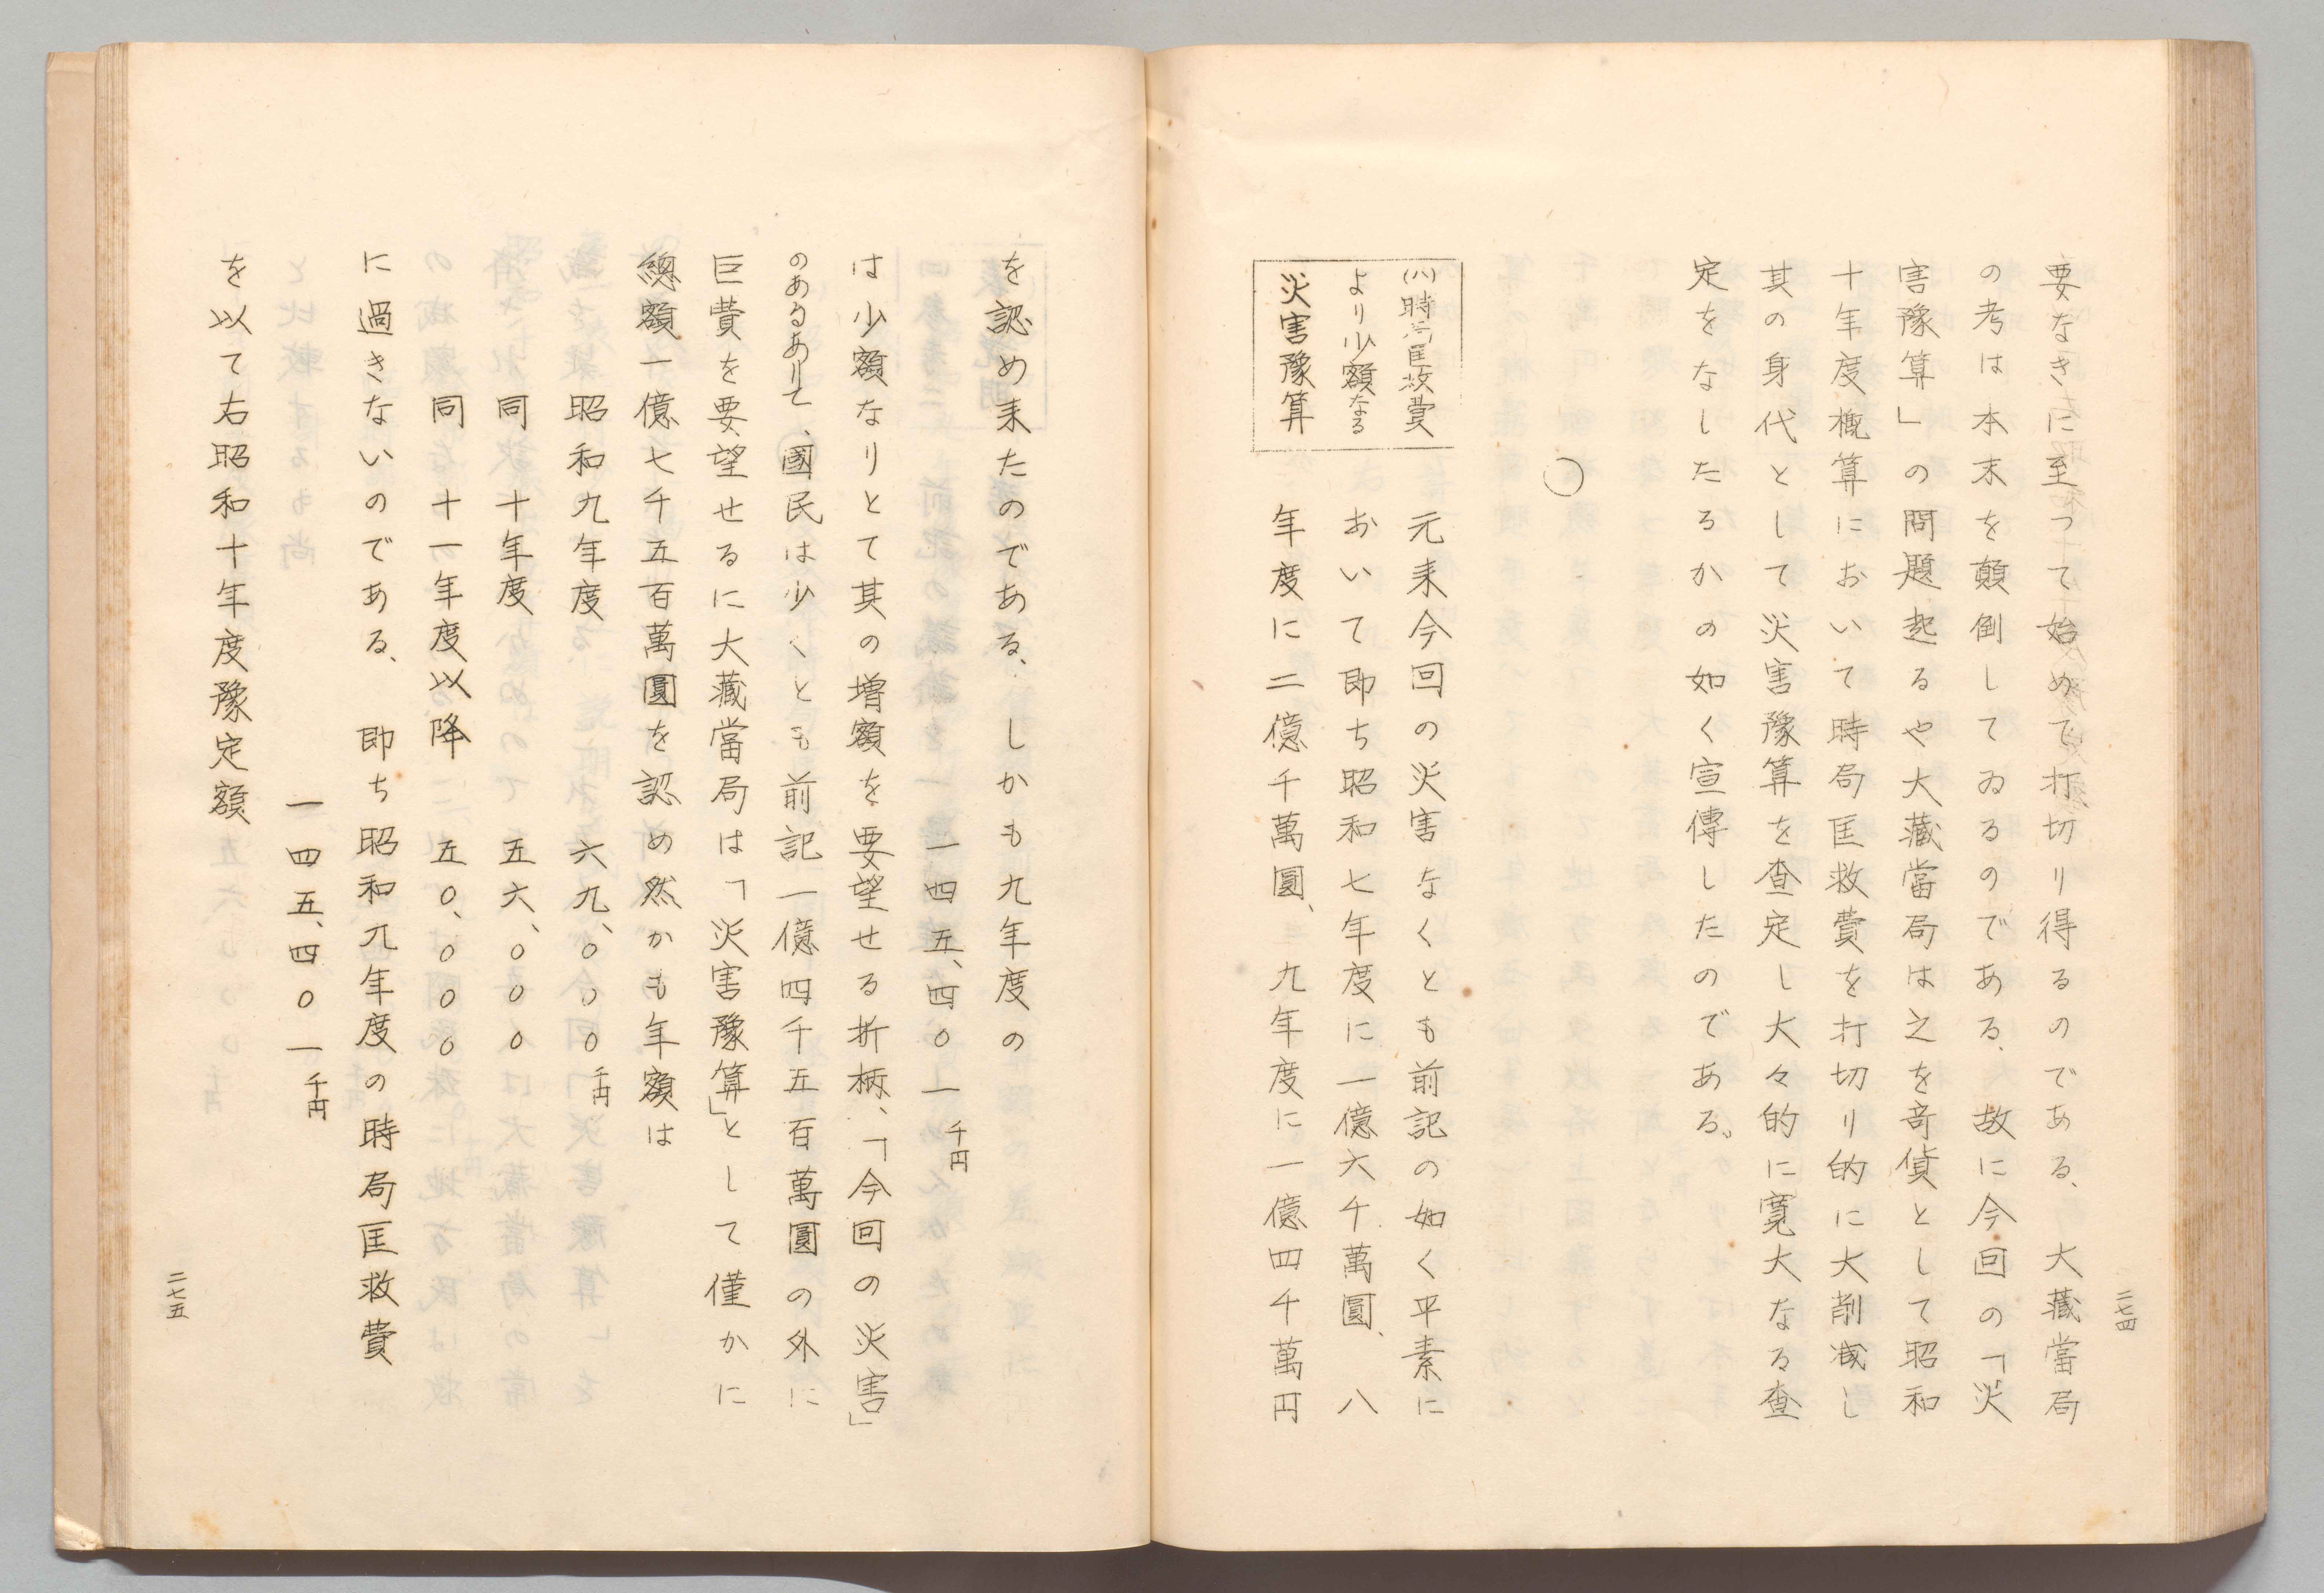 二七四
要なきに至つて始めて打切り得るのである、大藏當局
の考は本末を顛倒してゐるのである、故に今回の「災
害豫算」の問題起るや大藏當局は之を奇貨として昭和
十年度槪算において時局匡救費を打切り的に大削減し
其の身代として災害豫算を査定し大々的に寬大なる査
定をなしたるかの如く宣傳したのである。
○
(ハ)時局匡救費
より少額なる
災害豫算
元来今回の災害なくとも前記の如く平素に
おいて即ち昭和七年度に一億六千萬圓、八
年度に二億千萬圓、九年度に一億四千萬円
を認め来たのである、しかも九年度の
一四五、四〇一千円
は少額なりとて其の増額を要望せる折柄、「今回の災害」
のあるありて、國民は少くとも前記一億四千五百萬圓の外に
巨費を要望せるに大藏當局は「災害豫算」として僅かに
總額一億七千五百萬圓を認め然かも年額は
昭和九年度 六九、〇〇〇千円
同 十年度 五六、〇〇〇
同 十一年度以降 五〇、〇〇〇
に過きないのである、即ち昭和九年度の時局匡救費
一四五、四〇一千円
を以て右昭和十年度豫定額
二七五